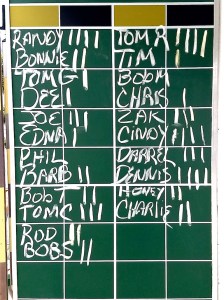 RANDY
BONNIE
TOM G
DEE
JOE
EDNA
PHIL
BARB
BOB T
TOM C
ROD
BOB S
TOM R
TIM
BOOM
CHRIS
ZAK
CINDY
DARREL
DENNIS
HONEY
CHARLIE